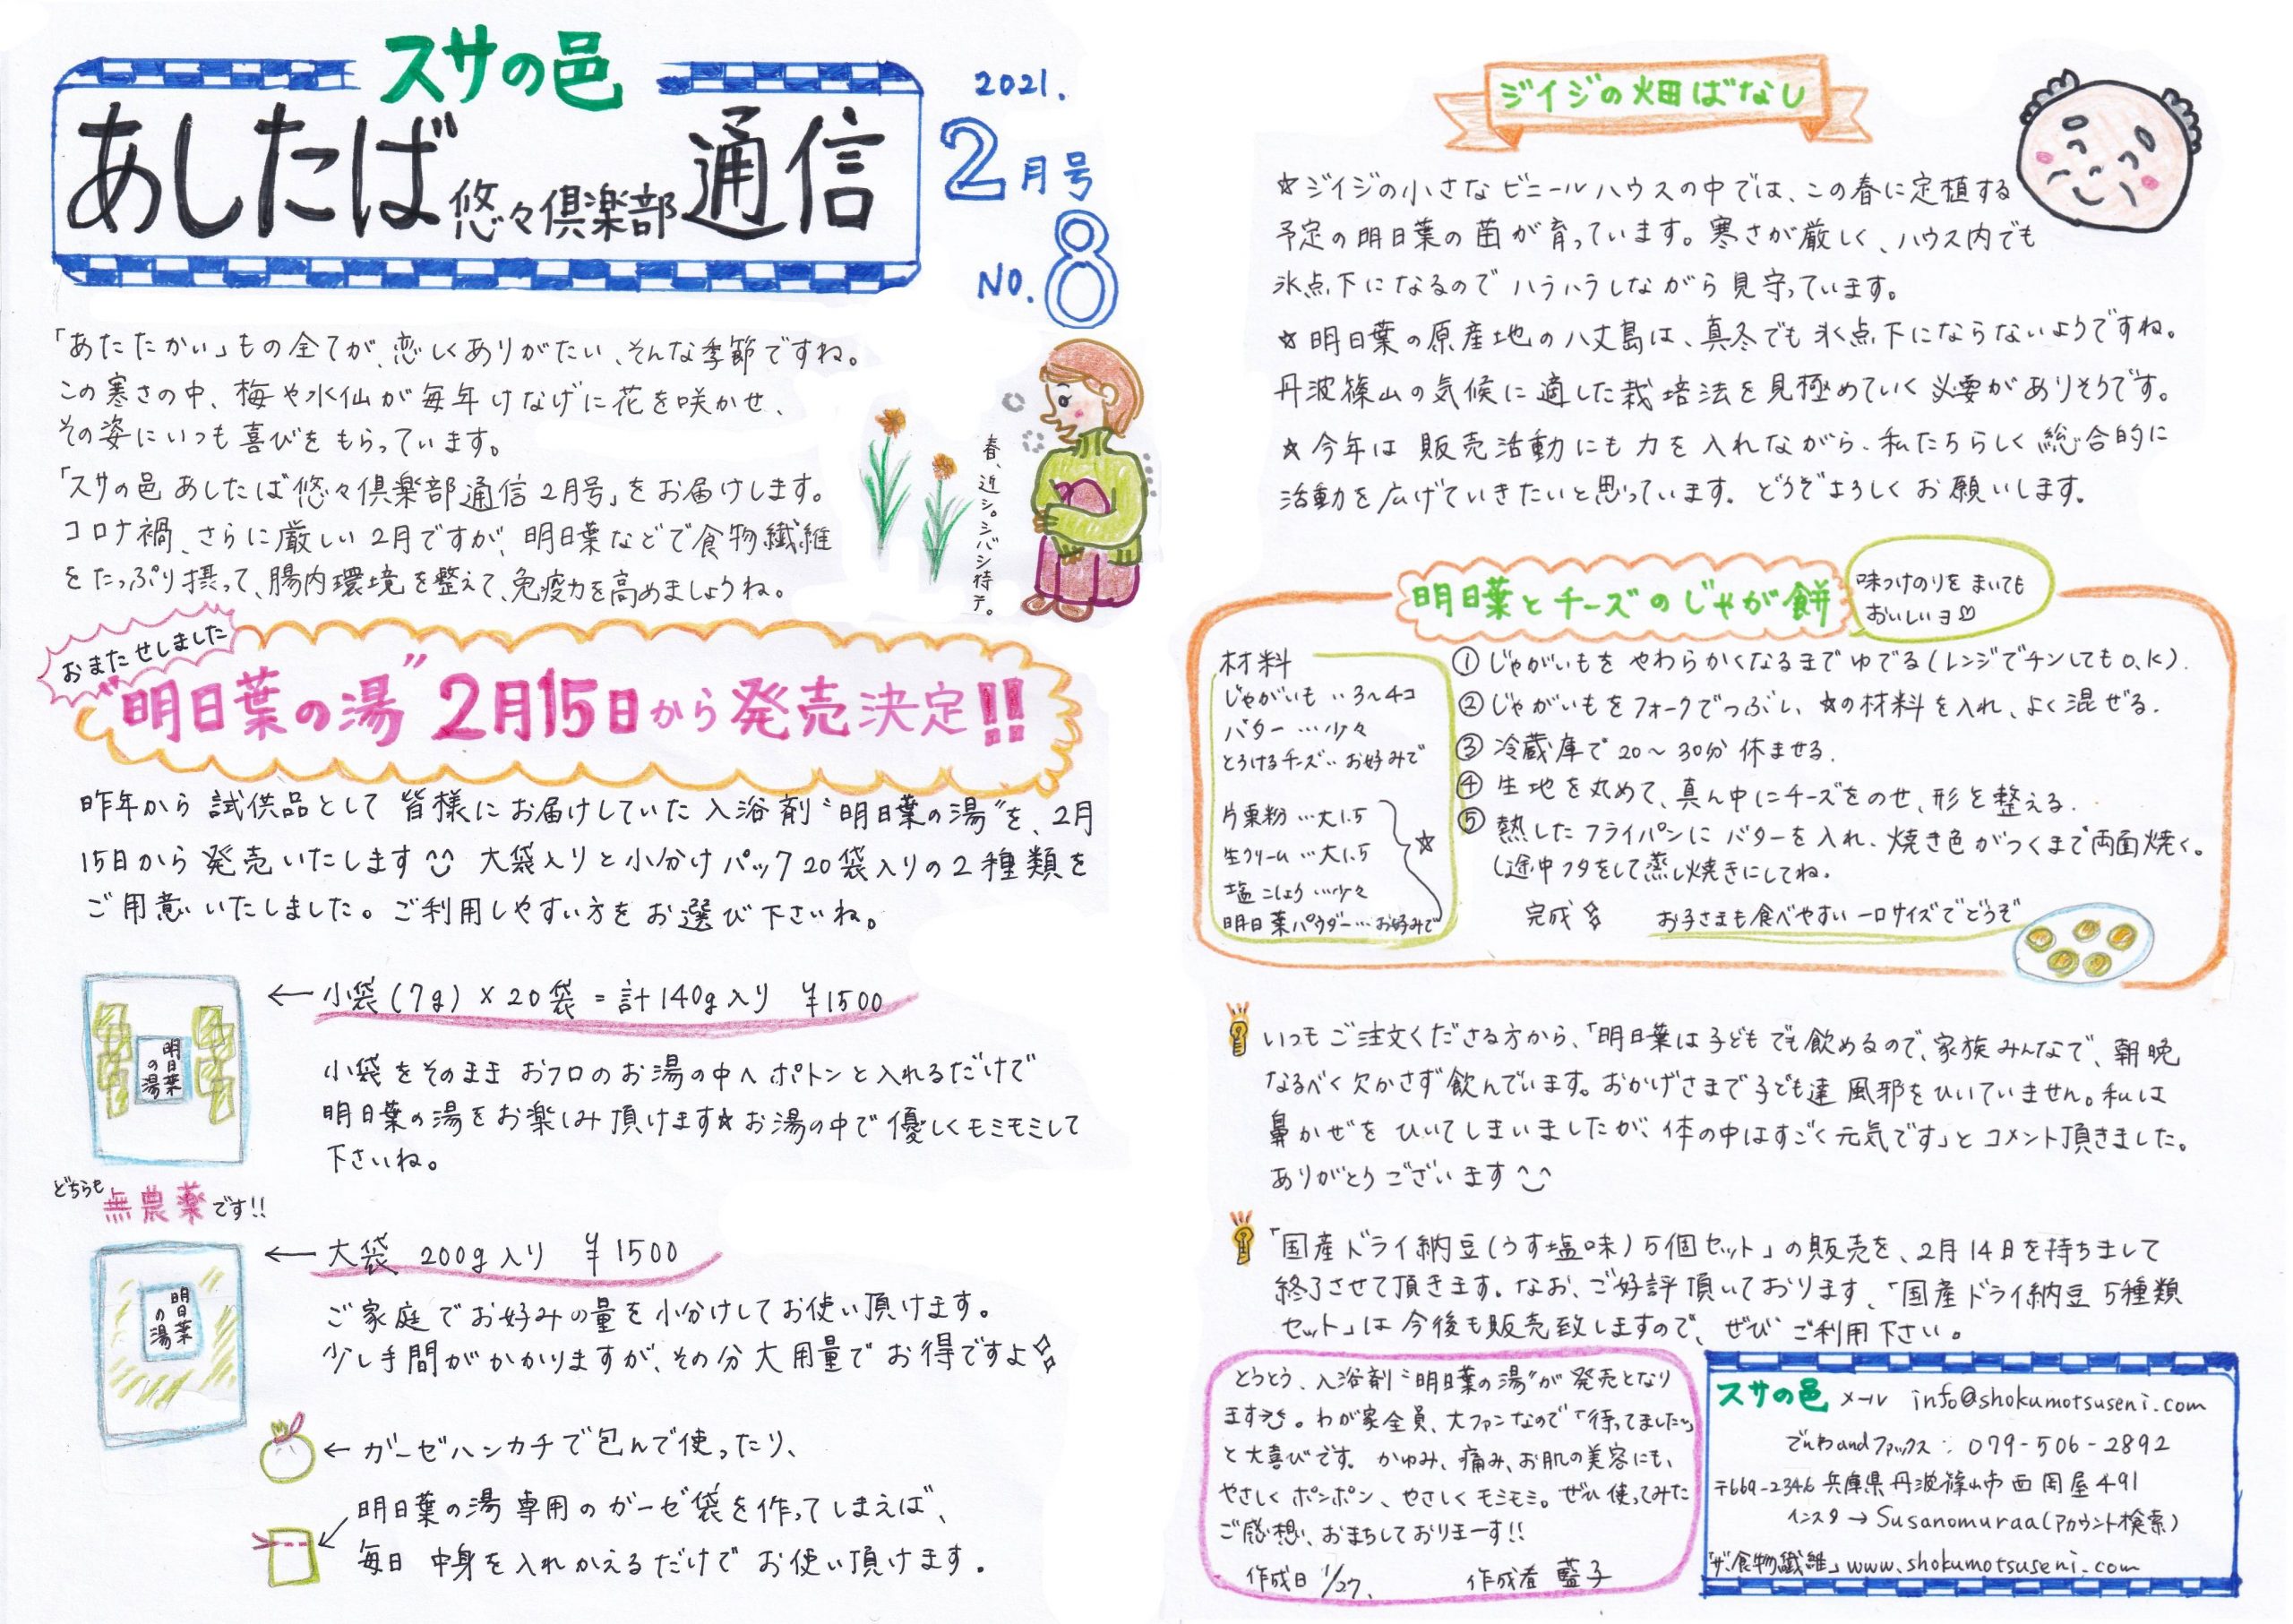 スサの邑
あしたば悠々倶楽部通信
2021.
2月号
NO.8
「あたたかい」もの全てが、恋しくありがたい、そんな季節ですね。
この寒さの中、梅や水仙が毎年けなげに花を咲かせ、
その姿にいつも喜びをもらっています。
「スサの邑 あしたば悠々倶楽部通信2月号」をお届けします。
コロナ禍、さらに厳しい2月ですが、明日葉などで食物繊維
をたっぷり摂って、腸内環境を整えて、免疫力を高めましょうね。
春、近シ。シバシ待テ。
おまたせしました
"明日葉の湯"2月15日から発売決定!!
昨年から試供品として皆様にお届けしていた入浴剤"明日葉の湯"を、2月
15日から発売いたします 大袋入りと小分けパック20袋入りの2種類を
ご用意いたしました。ご利用しやすい方をお選び下さいね。
明日葉の湯
←小袋(7g)×20袋=計140g入り ¥1500
小袋をそのままおフロのお湯の中へポトンと入れるだけで
明日葉の湯をお楽しみ頂けます☆お湯の中で優しくモミモミして
下さいね。
どちらも無農薬です!!
明日葉の湯
←大袋 200g入り ¥1500
ご家庭でお好みの量を小分けしてお使い頂けます。
少し手間がかかりますが、その分大用量でお得ですよ
←ガーゼハンカチで包んで使ったり、
明日葉の湯専用のガーゼ袋を作ってしまえば、
毎日 中身を入れかえるだけでお使い頂けます。
ジイジの畑ばなし
☆ジイジの小さなビニールハウスの中では、この春に定植する
予定の明日葉の苗が育っています。寒さが厳しく、ハウス内でも
氷点下になるのでハラハラしながら見守っています。
☆明日葉の原産地の八丈島は、真冬でも氷点下にならないようですね。
丹波篠山の気候に適した栽培法を見極めていく必要がありそうです。
☆今年は販売活動にも力を入れながら、私たちらしく総合的に
活動を広げていきたいと思っています。どうぞよろしくお願いします。
明日葉とチーズのじゃが餅
味つけのりをまいても
おいしいヨ♡
材料
じゃがいも‥3〜4コ
バター…少々
とろけるチーズ‥お好みで
片栗粉…大1.5
生クリーム…大1.5
塩こしょう…少々
明日葉パウダー…お好みで
☆
①じゃがいもをやわらかくなるまでゆでる(レンジでチンしてもO.K).
②じゃがいもをフォークでつぶし、☆の材料を入れ、よく混ぜる.
③冷蔵庫で20〜30分休ませる.
④生地を丸めて、真ん中にチーズをのせ、形を整える.
⑤熱したフライパンにバターを入れ、焼き色がつくまで両面焼く。
(途中フタをして蒸し焼きにしてね.
完成 お子さまも食べやすい一口サイズでどうぞ
いつもご注文くださる方から、「明日葉は子どもでも飲めるので、家族みんなで、朝晩
なるべく欠かさず飲んでいます。おかげさまで子ども達風邪をひいていません。私は
鼻かぜをひいてしまいましたが、体の中はすごく元気です」とコメント頂きました。
ありがとうございます
「国産ドライ納豆(うす塩味)5個セット」の販売を、2月14日を持ちまして
終了させて頂きます。なお、ご好評頂いております、「国産ドライ納豆5種類
セット」は今後も販売致しますので、ぜひご利用下さい。
とうとう、入浴剤"明日葉の湯"が発売となり
ます。わが家全員、大ファンなので「待ってましたっ」
と大喜びです。かゆみ、痛み、お肌の美容にも、
やさしくポンポン、やさしくモミモミ。ぜひ使ってみた
ご感想、おまちしておりまーす!!
作成日 1/27、 作成者 藍子
スサの邑 メール info@shokumotsuseni.com
でんわandファックス: 079-506-2892
〒669-2346 兵庫県丹波篠山市西岡屋491
インスタ→Susanomuraa(アカウント検索)
「ザ.食物繊維」www.shokumotsuseni.com